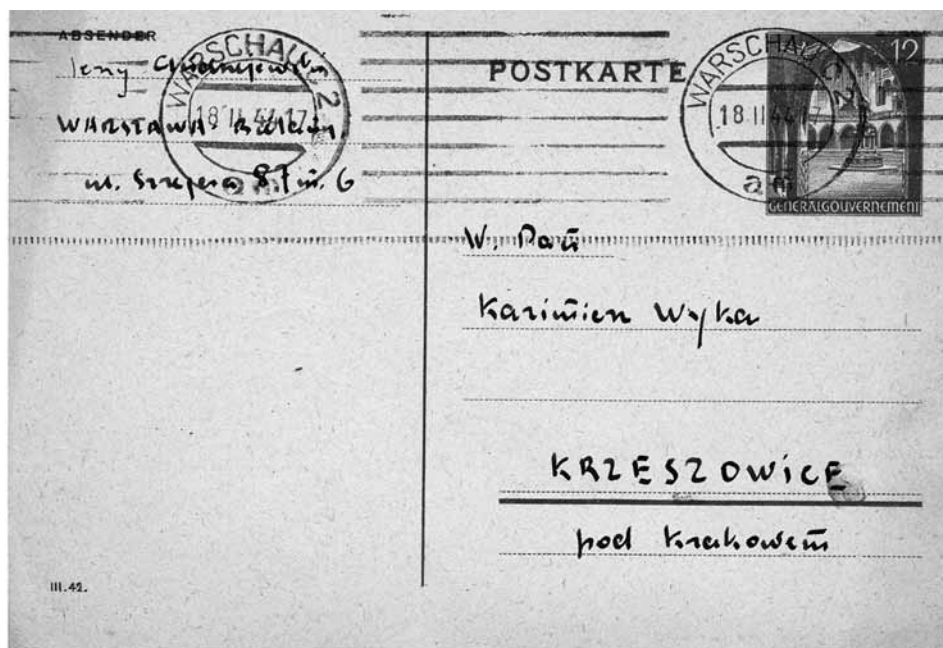 ABSENDER
Jerzy Andrzejewski
WARSZAWA - Bielany
ul. Szregera 87 m. 6
WARSCHAU C 2
18 II 44 17
POSTKARTE
WARSCHAU C 2
18 II 44 17
am
12
GENERALGOUVERNEMENT
W. Pan
Kazimierz Wyka
KRZESZOWICE
pod Krakowem
III.42.